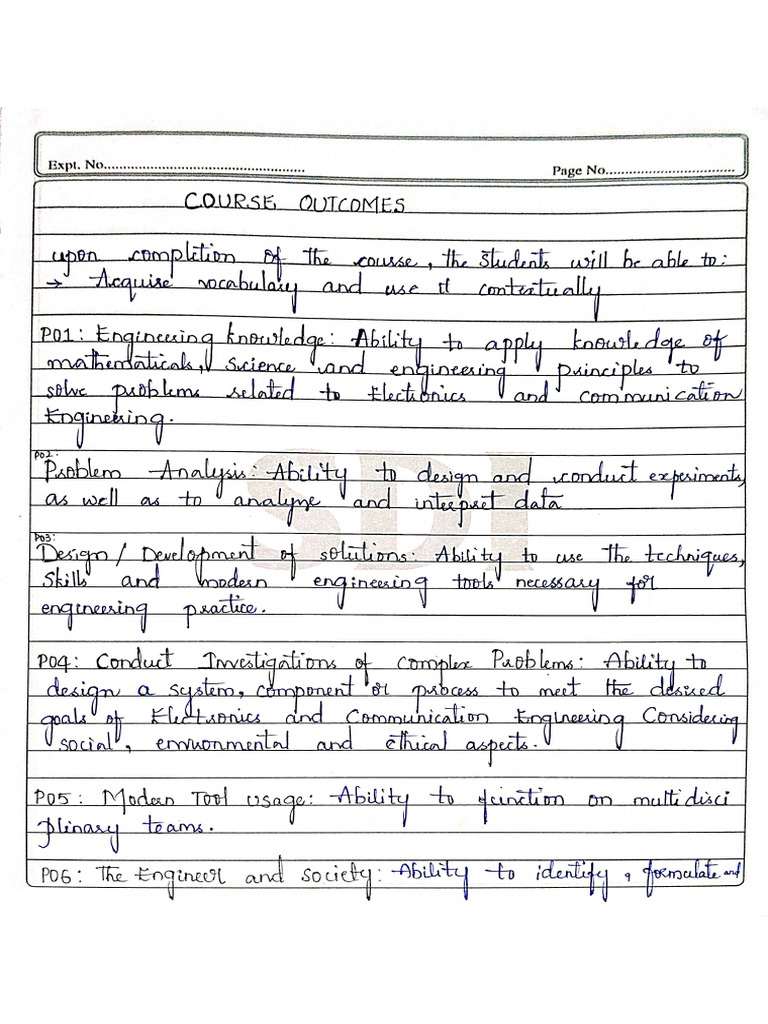 Expt. No.....................................................
Page No.................................
COURSE OUTCOMES
upon completion of the course, the students will be able to:
→ Acquire vocabulary and use it contextually
PO1: Engineering knowledge: Ability to apply knowledge of
mathematicals, science and engineering principles to
solve problems related to Electronics and communication
Engineering.
PO2:
Problem Analysis: Ability to design and conduct experiments,
as well as to analyze and interpret data
PO3:
Design / Development of solutions: Ability to use the techniques,
skills and modern engineering tools necessary for
engineering practice.
PO4: Conduct Investigations of complex Problems: Ability to
design a system, component or process to meet the desired
goals of Electronics and Communication Engineering Considering
social, environmental and ethical aspects.
PO5: Modern Tool usage: Ability to function on multidisci
plinary teams.
PO6: The Engineer and society: Ability to identify, formulate and
SDI